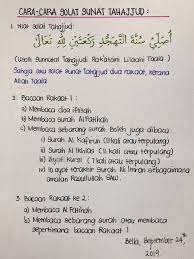 CARA-CARA SOLAT SUNAT TAHAJJUD :
1. Niat Solat Tahajjud:
أُصَلِّيْ سُنَّةَ التَّهَجُّدِ رَكْعَتَيْنِ لِلّٰهِ تَعَالَى
(Usolli Sunnatat Tahajjudi Rak'ataini Lillaahi Taala)
Sahaja aku solat Sunat Tahajjud dua rakaat, kerana
Allah Taala
2. Bacaan Rakaat 1 :
a) Membaca doa iftitah
b) Membaca surah Al Fatihah
c) Membaca sebarang surah. Boleh juga dibaca:
i) Surah Al Kafirun (1 kali atau berulang)
ii) Surah Al Ikhlas (1 kali atau berulang)
iii) Ayat Kursi (1 kali atau berulang)
Surah Ali Imran sebagaimana
amalan Rasulullah SAW.
3. Bacaan Rakaat ke 2 :
a) Membaca Al Fatihah
b) Membaca sebarang surah atau membaca
sepertimana bacaan Rakaat 1
Bella, September 24th,
2019.